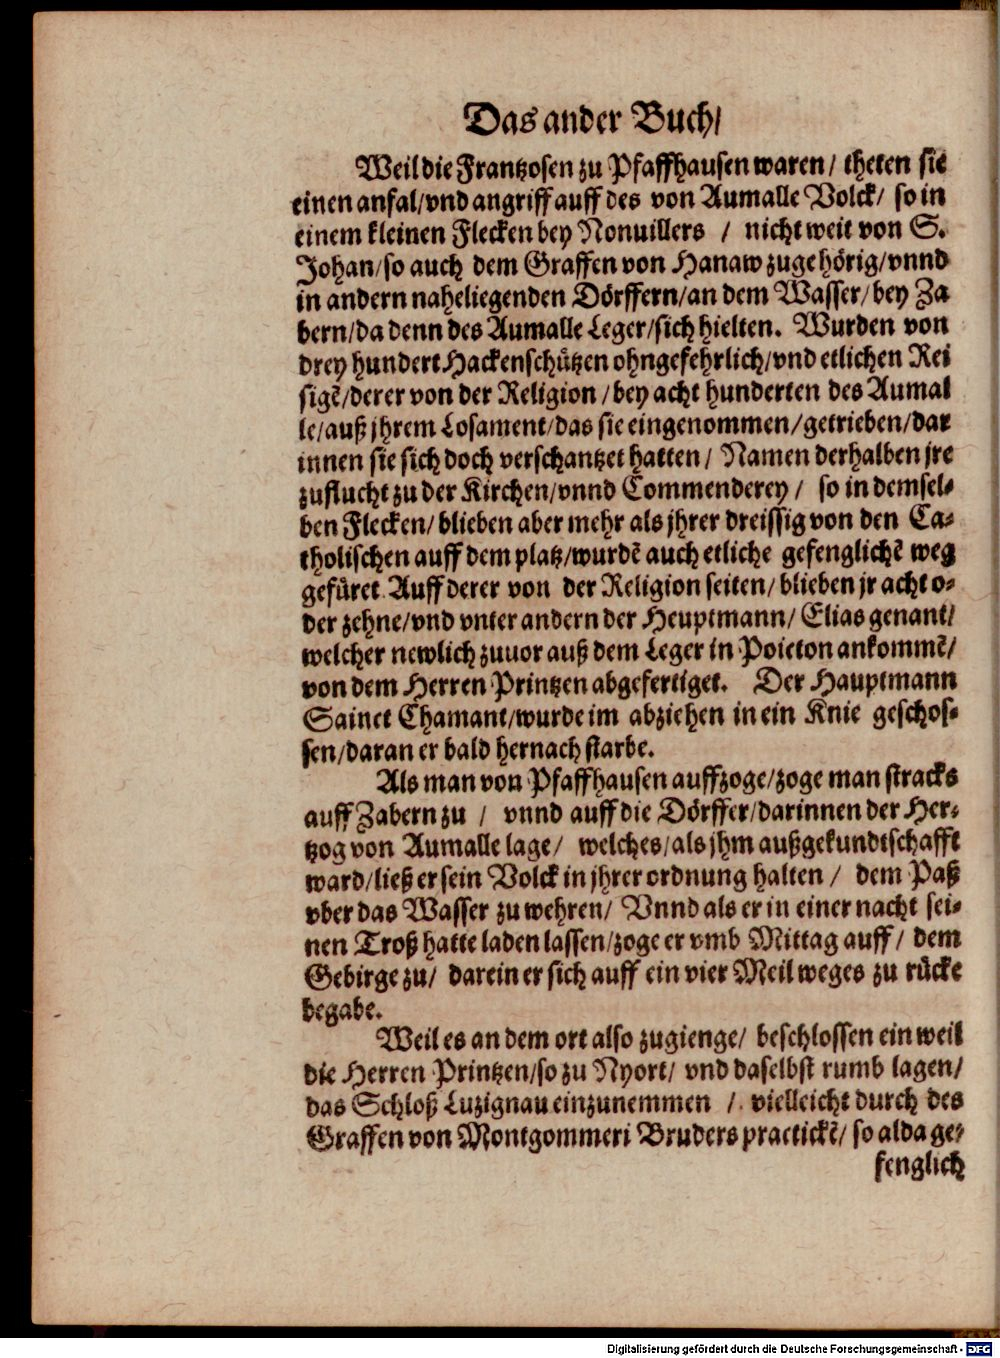 Das ander Buch/
Weil die Frantzosen zu Pfaffhausen waren/ theten sie
einen anfal/vnd angriff auff des von Aumalle Volck/ so in
einem kleinen Flecken bey Nonuillers / nicht weit von S.
Johan/so auch dem Graffen von Hanaw zugehörig/vnnd
in andern naheliegenden Dörffern/an dem Wasser/bey Za
bern/da denn des Aumalle Leger/sich hielten. Wurden von
drey hundert Hackenschützen ohngefehrlich/vnd etlichen Rei
sigẽ/derer von der Religion /bey acht hunderten des Aumal
le/auß jhrem Losament/das sie eingenommen/getrieben/dar
innen sie sich doch verschantzet hatten/ Namen derhalben jre
zuflucht zu der Kirchen/vnnd Commenderey / so in demsel-
ben Flecken/ blieben aber mehr als jhrer dreissig von den Ca-
tholischen auff dem platz/wurdẽ auch etliche gefenglichẽ weg
gefüret. Auff derer von der Religion seiten/ blieben jr acht o-
der zehne/vnd vnter andern der Heuptmann/ Elias genant/
welcher newlich zuuor auß dem Leger in Poieton ankommẽ/
von dem Herren Printzen abgefertiget. Der Hauptmann
Sainct Chamant/wurde im abziehen in ein Knie geschos-
sen/daran er bald hernach starbe.
Als man von Pfaffhausen auffzoge/zoge man stracks
auff Zabern zu / vnnd auff die Dörffer/darinnen der Her-
tzog von Aumalle lage/ welches/als jhm außgekundtschafft
ward/ließ er sein Volck in jhrer ordnung halten / dem Paß
vber das Wasser zu wehren/ Vnnd als er in einer nacht sei-
nen Troß hatte laden lassen/zoge er vmb Mittag auff/ dem
Gebirge zu/ darein er sich auff ein vier Meil weges zu rücke
begabe.
Weil es an dem ort also zugienge/ beschlossen ein weil
die Herren Printzen/so zu Nyort/ vnd daselbst rumb lagen/
das Schloß Luzignau einzunemmen / vielleicht durch des
Graffen von Montgommeri Bruders practickẽ/ so alda ge-
fenglich
Digitalisierung gefördert durch die Deutsche Forschungsgemeinschaft - DFG